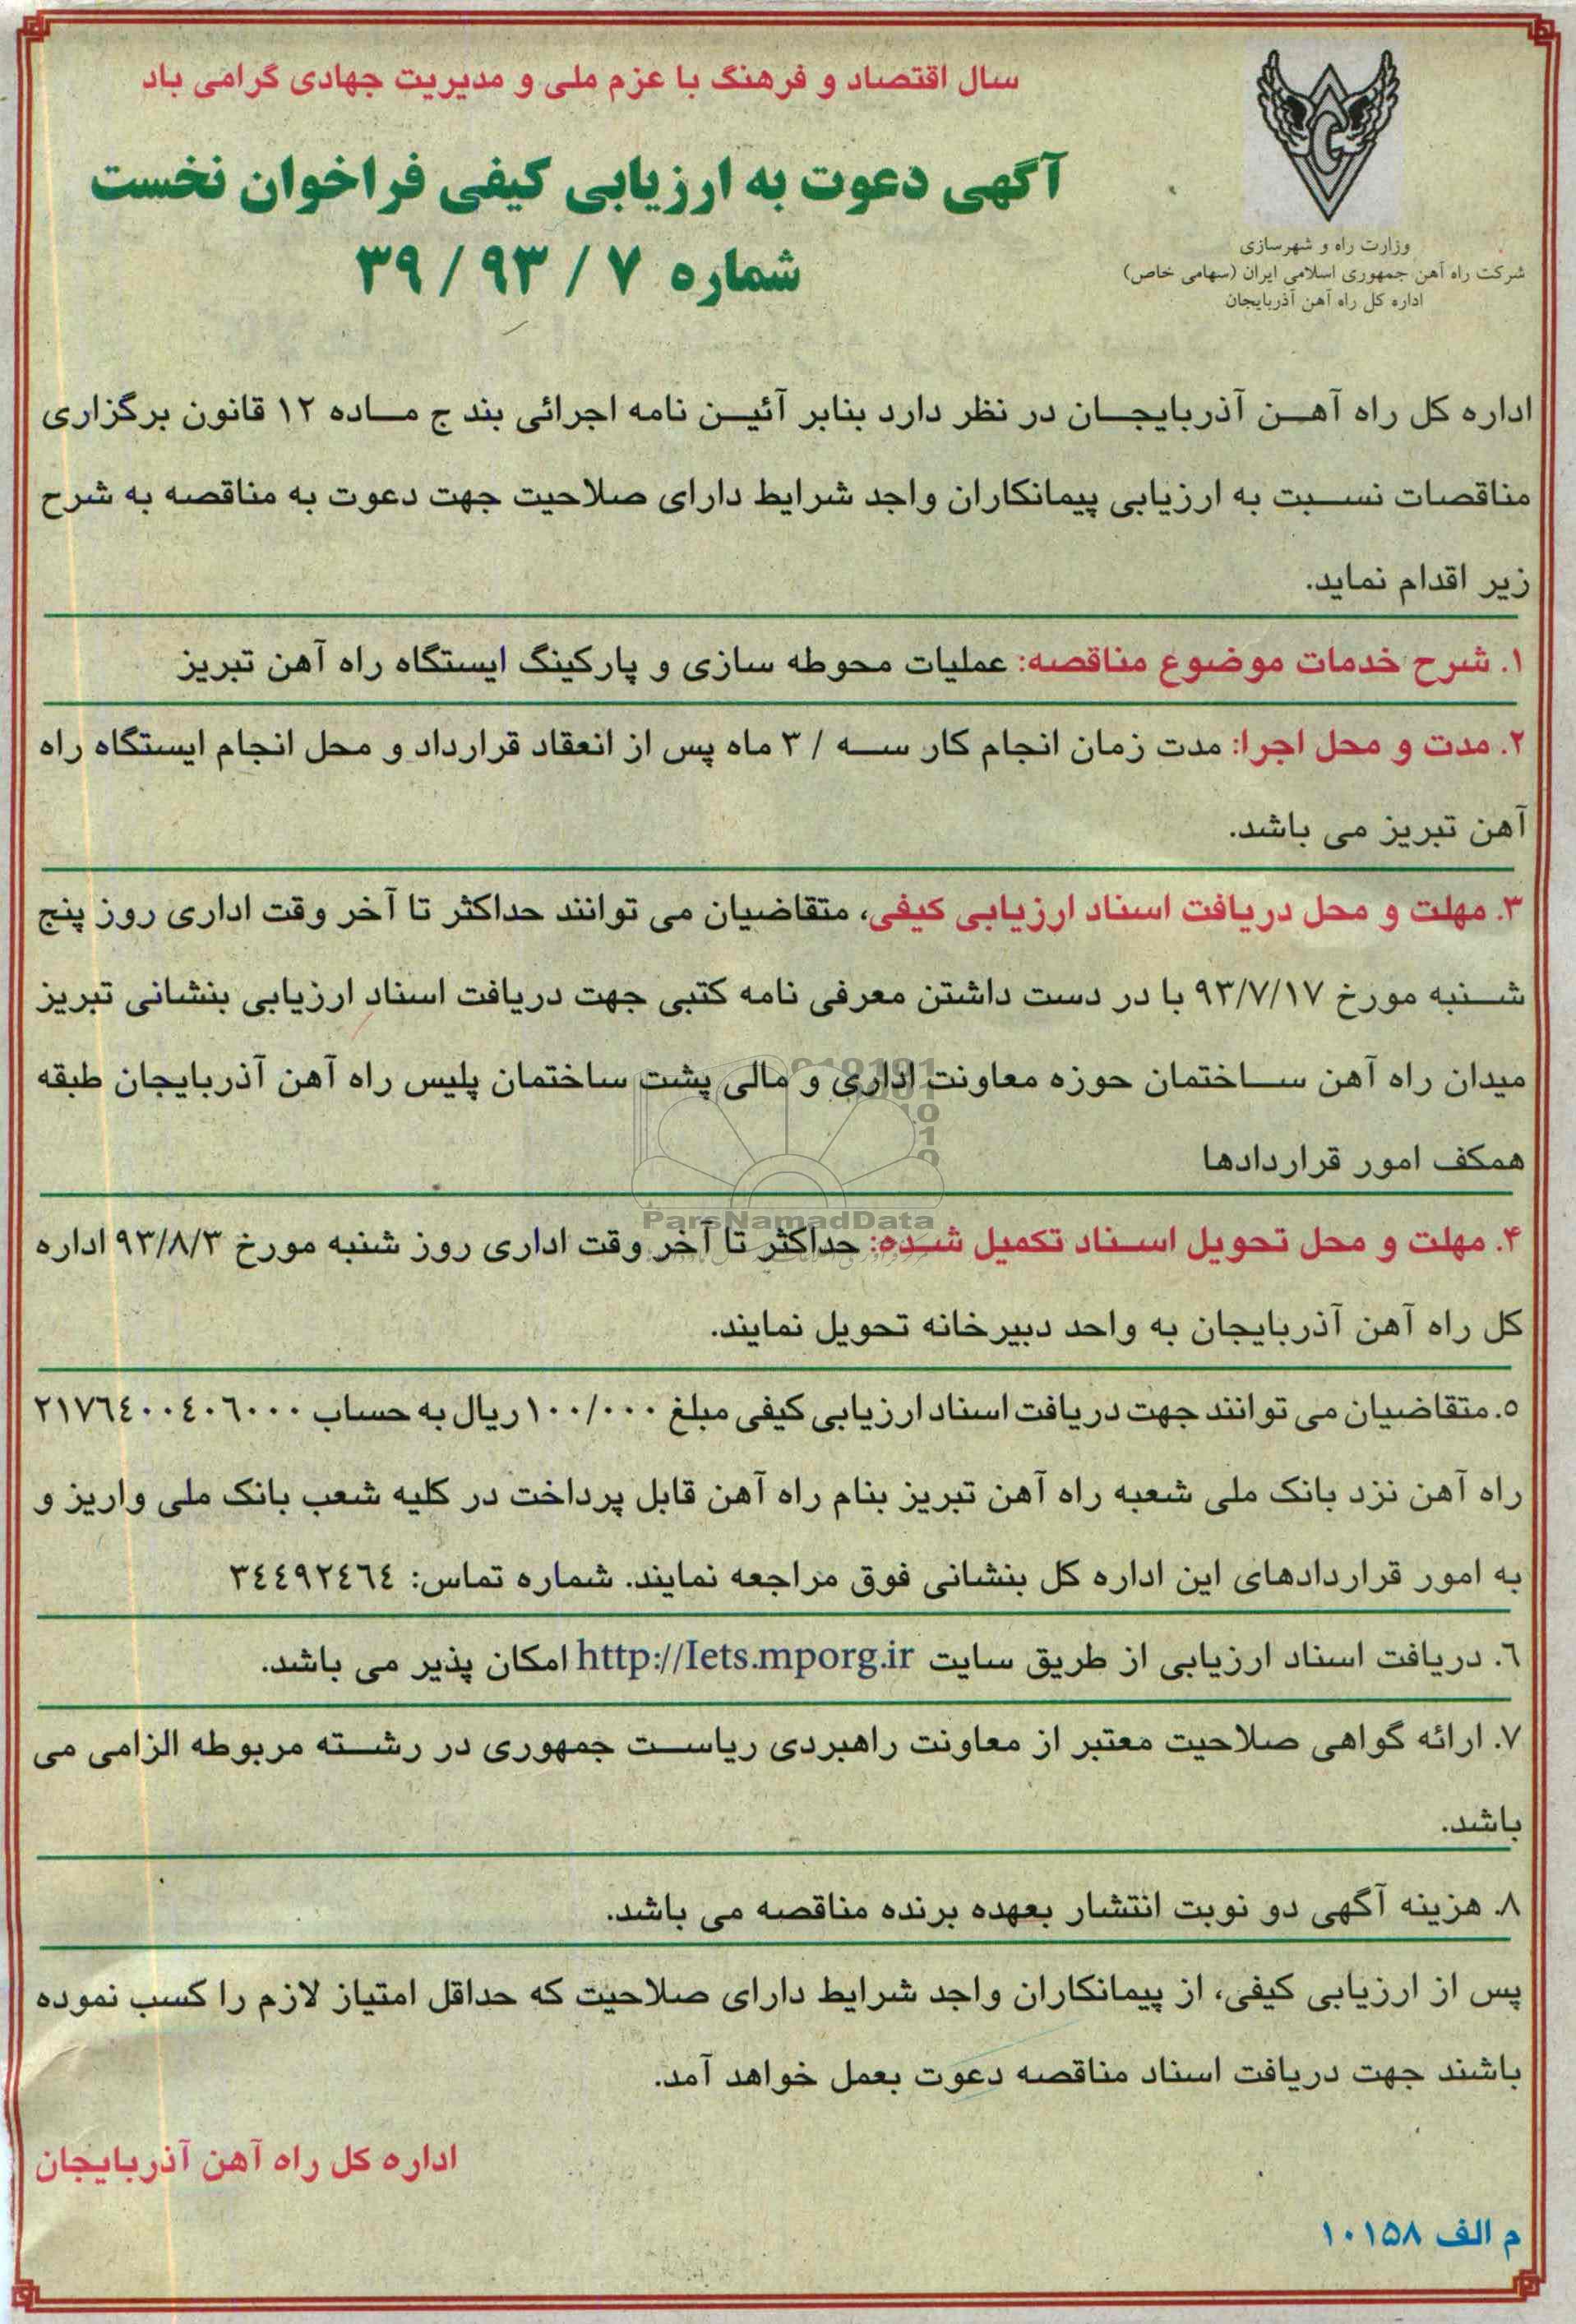 سال اقتصاد و فرهنگ با عزم ملی و مدیریت جهادی گرامی باد
آگهی دعوت به ارزیابی کیفی فراخوان نخست
شماره ۷ / ۹۳ / ۳۹
وزارت راه و شهرسازی
شرکت راه آهن جمهوری اسلامی ایران (سهامی خاص)
اداره کل راه آهن آذربایجان
اداره کل راه آهن آذربایجان در نظر دارد بنابر آئین نامه اجرائی بند ج ماده ۱۲ قانون برگزاری
مناقصات نسبت به ارزیابی پیمانکاران واجد شرایط دارای صلاحیت جهت دعوت به مناقصه به شرح
زیر اقدام نماید.
۱. شرح خدمات موضوع مناقصه: عملیات محوطه سازی و پارکینگ ایستگاه راه آهن تبریز
۲. مدت و محل اجرا: مدت زمان انجام کار سه / ۳ ماه پس از انعقاد قرارداد و محل انجام ایستگاه راه
آهن تبریز می باشد.
۳. مهلت و محل دریافت اسناد ارزیابی کیفی، متقاضیان می توانند حداکثر تا آخر وقت اداری روز پنج
شنبه مورخ ۹۳/۷/۱۷ با در دست داشتن معرفی نامه کتبی جهت دریافت اسناد ارزیابی بنشانی تبریز
میدان راه آهن ساختمان حوزه معاونت اداری و مالی پشت ساختمان پلیس راه آهن آذربایجان طبقه
همکف امور قراردادها
ParsNamadData
۴. مهلت و محل تحویل اسناد تکمیل شده: حداکثر تا آخر وقت اداری روز شنبه مورخ ۹۳/۸/۳ اداره
کل راه آهن آذربایجان به واحد دبیرخانه تحویل نمایند.
۵. متقاضیان می توانند جهت دریافت اسناد ارزیابی کیفی مبلغ ۱۰۰/۰۰۰ ریال به حساب ۲۱۷۶٤۰۰٤۰۶۰۰۰
راه آهن نزد بانک ملی شعبه راه آهن تبریز بنام راه آهن قابل پرداخت در کلیه شعب بانک ملی واریز و
به امور قراردادهای این اداره کل بنشانی فوق مراجعه نمایند. شماره تماس: ۳٤٤۹۲٤۶٤
٦. دریافت اسناد ارزیابی از طریق سایت http://Iets.mporg.ir امکان پذیر می باشد.
۷. ارائه گواهی صلاحیت معتبر از معاونت راهبردی ریاست جمهوری در رشته مربوطه الزامی می
باشد.
۸. هزینه آگهی دو نوبت انتشار بعهده برنده مناقصه می باشد.
پس از ارزیابی کیفی، از پیمانکاران واجد شرایط دارای صلاحیت که حداقل امتیاز لازم را کسب نموده
باشند جهت دریافت اسناد مناقصه دعوت بعمل خواهد آمد.
اداره کل راه آهن آذربایجان
م الف ۱۰۱۵۸